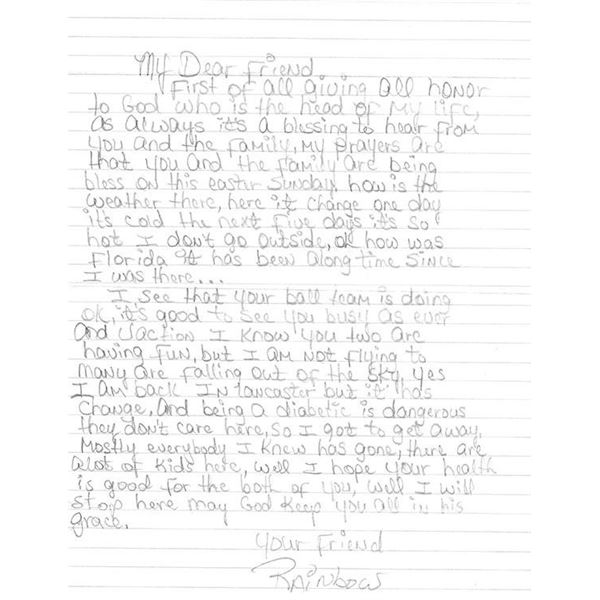 My Dear Friend
First of all giving all honor
to God who is the head of my life,
as always it's a blessing to hear from
you and the family, my prayers are
that you and the family are being
bless on this easter Sunday, how is the
weather there, here it change one day
it's cold the next five days it's so
hot I don't go outside, ok how was
Florida it has been along time since
I was there...
I see that your ball team is doing
ok, it's good to see you busy as ever
and Vaction I know you two are
having fun, but I am not flying to
many are falling out of the sky, yes
I am back In lancaster but it has
change, and being a diabetic is dangerous
they don't care here, so I got to get away,
mostly everybody I knew has gone, there are
alot of kids here, well I hope your health
is good for the both of you, well I will
stop here may God keep you all in his
grace.
Your Friend
Rainbow